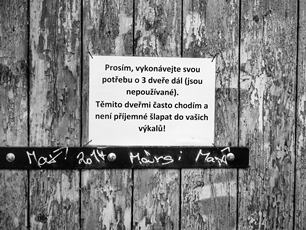 Prosím, vykonávejte svou
potřebu o 3 dveře dál (jsou
nepoužívané).
Těmito dveřmi často chodím a
není příjemné šlapat do vašich
výkalů!
2014